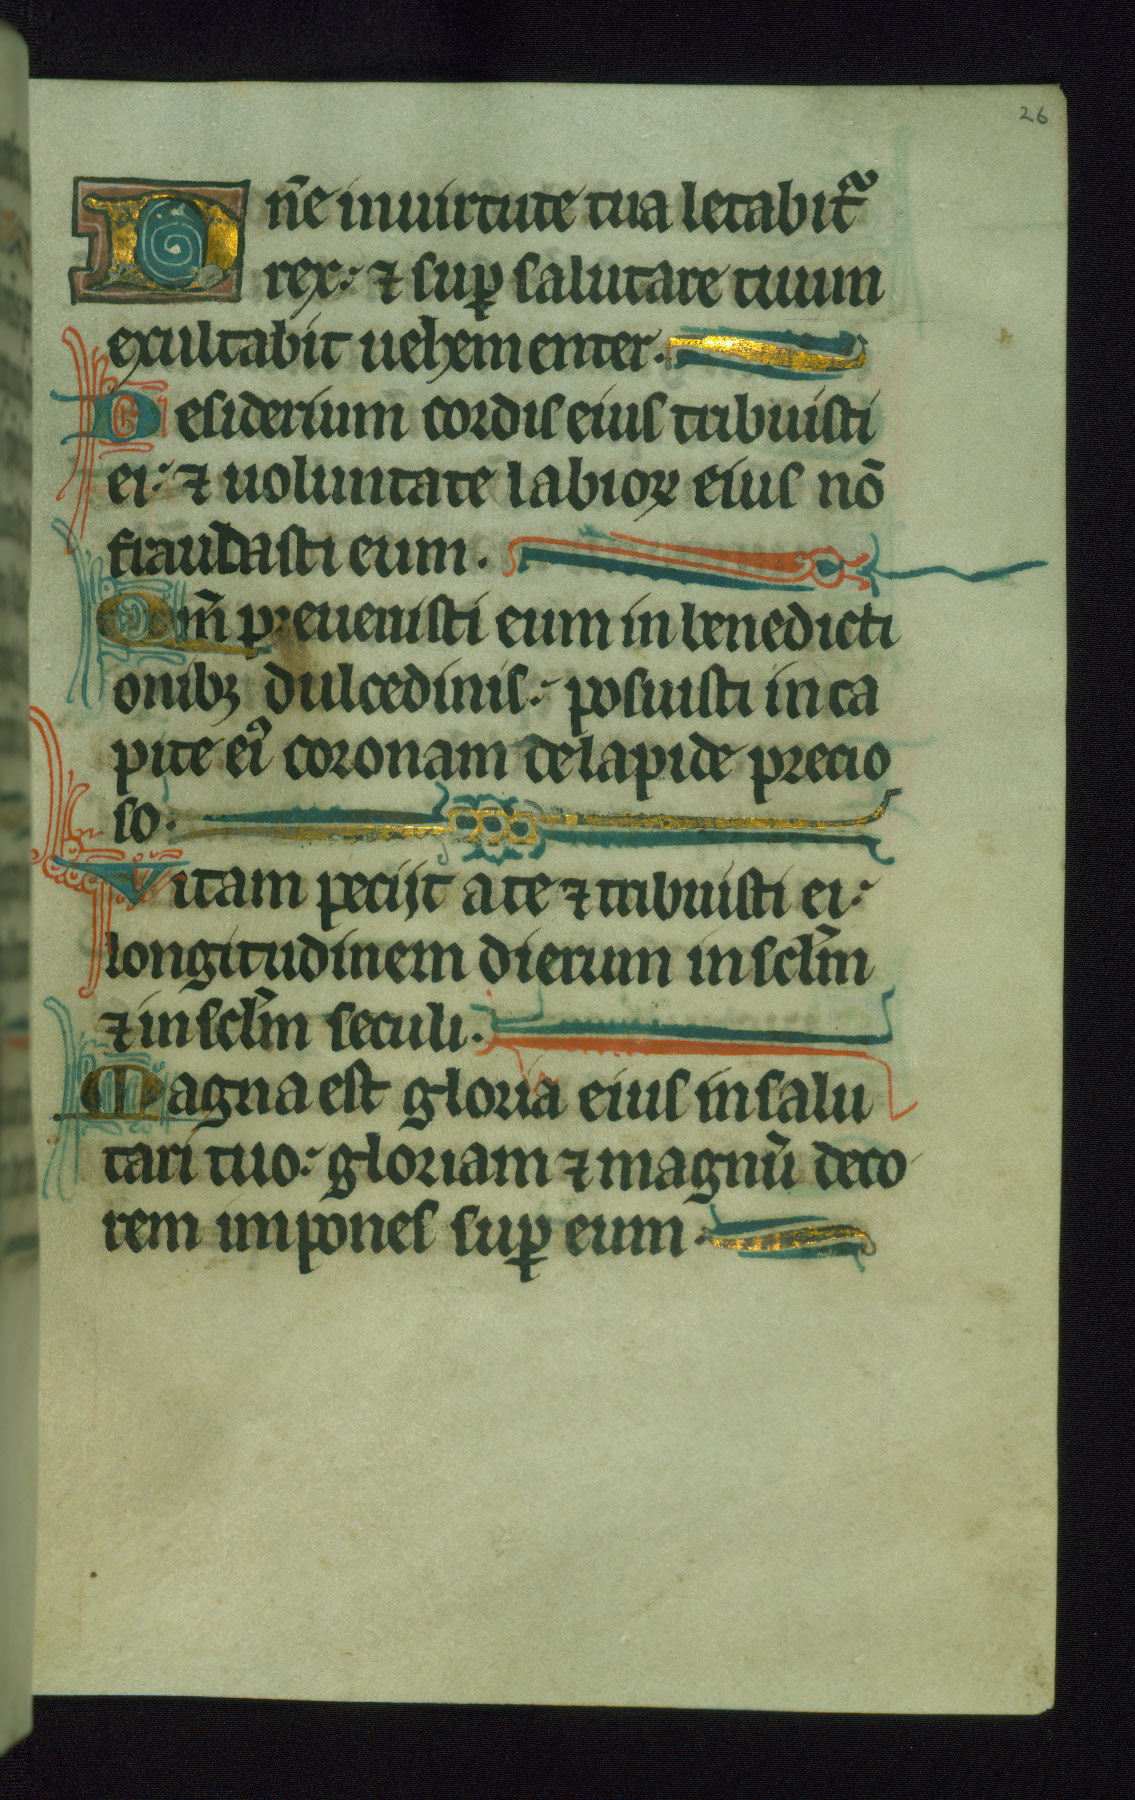 26
Dn̄e inuirtute tua letabit᷑
rex: ⁊ suꝑ salutare tuum
exultabit uehementer.
Desiderium cordis eius tribuisti
ei: ⁊ uoluntate labioꝝ eius nō
fraudasti eum.
Qm̄ preuenisti eum in benedicti
onibꝫ dulcedinis: posuisti in ca
pite eiꝰ coronam delapide precio
so.
Vitam petijt a te ⁊ tribuisti ei:
longitudinem dierum in sclm̄
⁊ in sclm̄ seculi.
Magna est gloria eius insalu
tari tuo: gloriam ⁊ magnū deco
rem impones suꝑ eum.